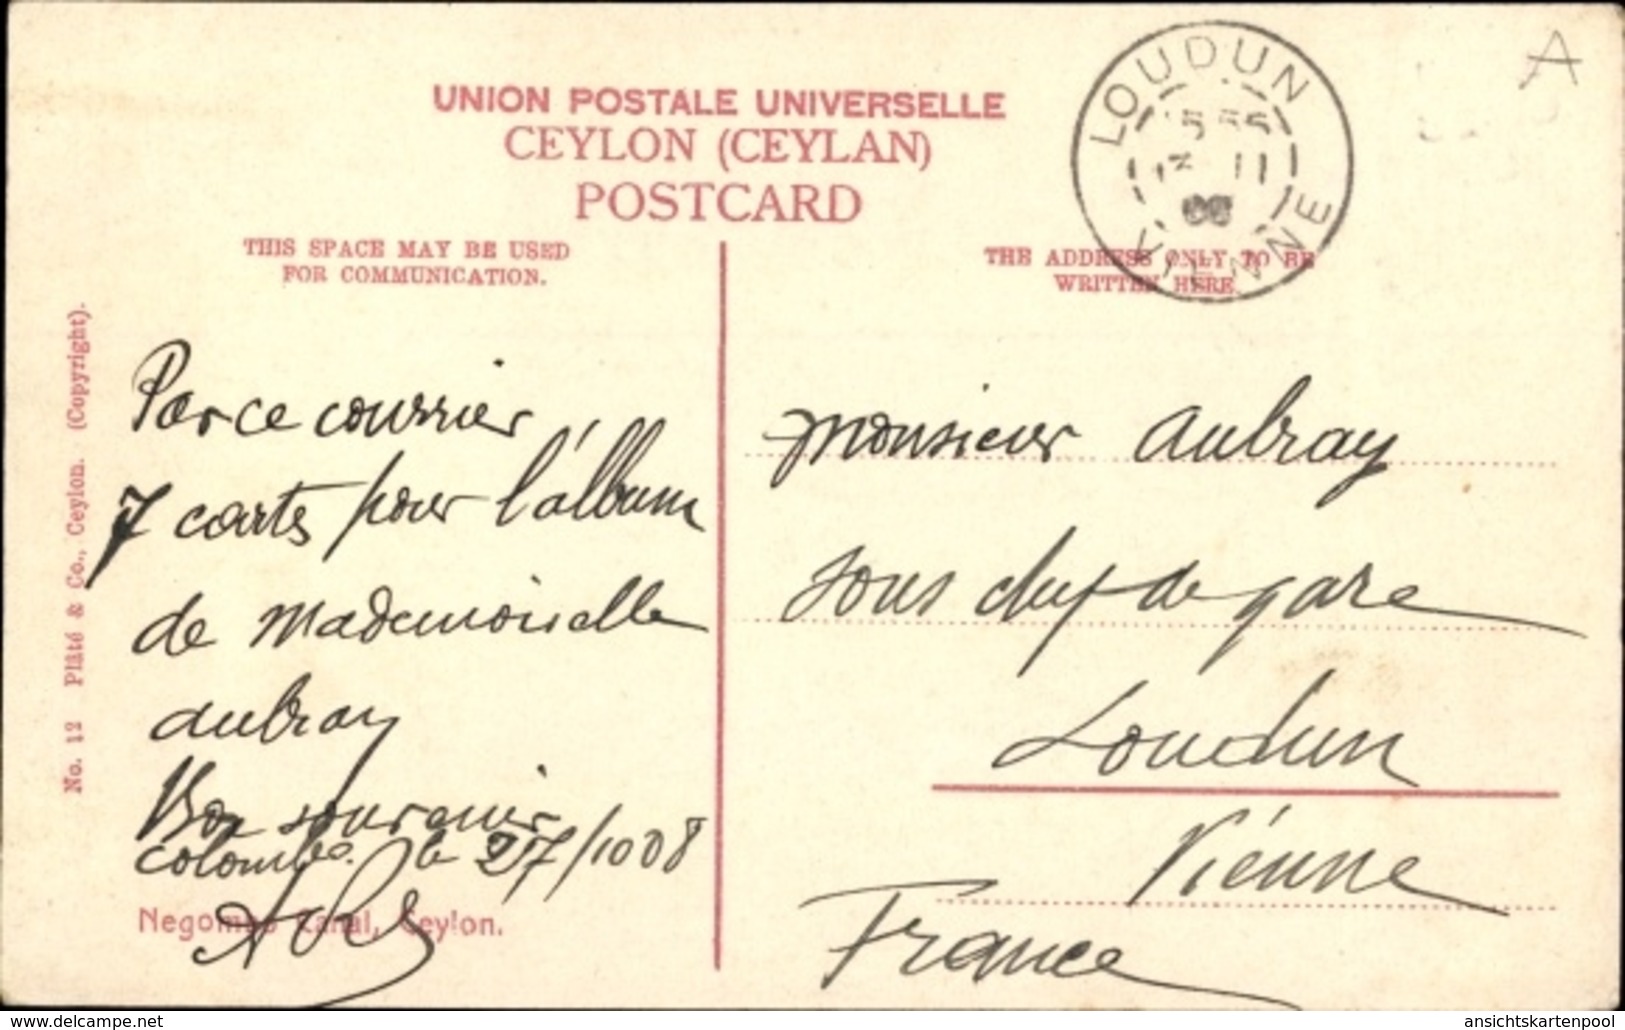 UNION POSTALE UNIVERSELLE
CEYLON (CEYLAN)
POSTCARD
THIS SPACE MAY BE USED
FOR COMMUNICATION.
THE ADDRESS ONLY TO BE
WRITTEN HERE.
LOUDUN
VIENNE
A
No. 12 Plâté & Co., Ceylon. (Copyright).
Par ce courrier
7 cartes pour l'álbum
de Mademoiselle
Aubray
Bon souvenir
Colombo. le 27/1008
Negombo Canal, Ceylon.
Monsieur Aubray
sous chef de gare
Loudun
Viénne
France
www.delcampe.net
ansichtskartenpool